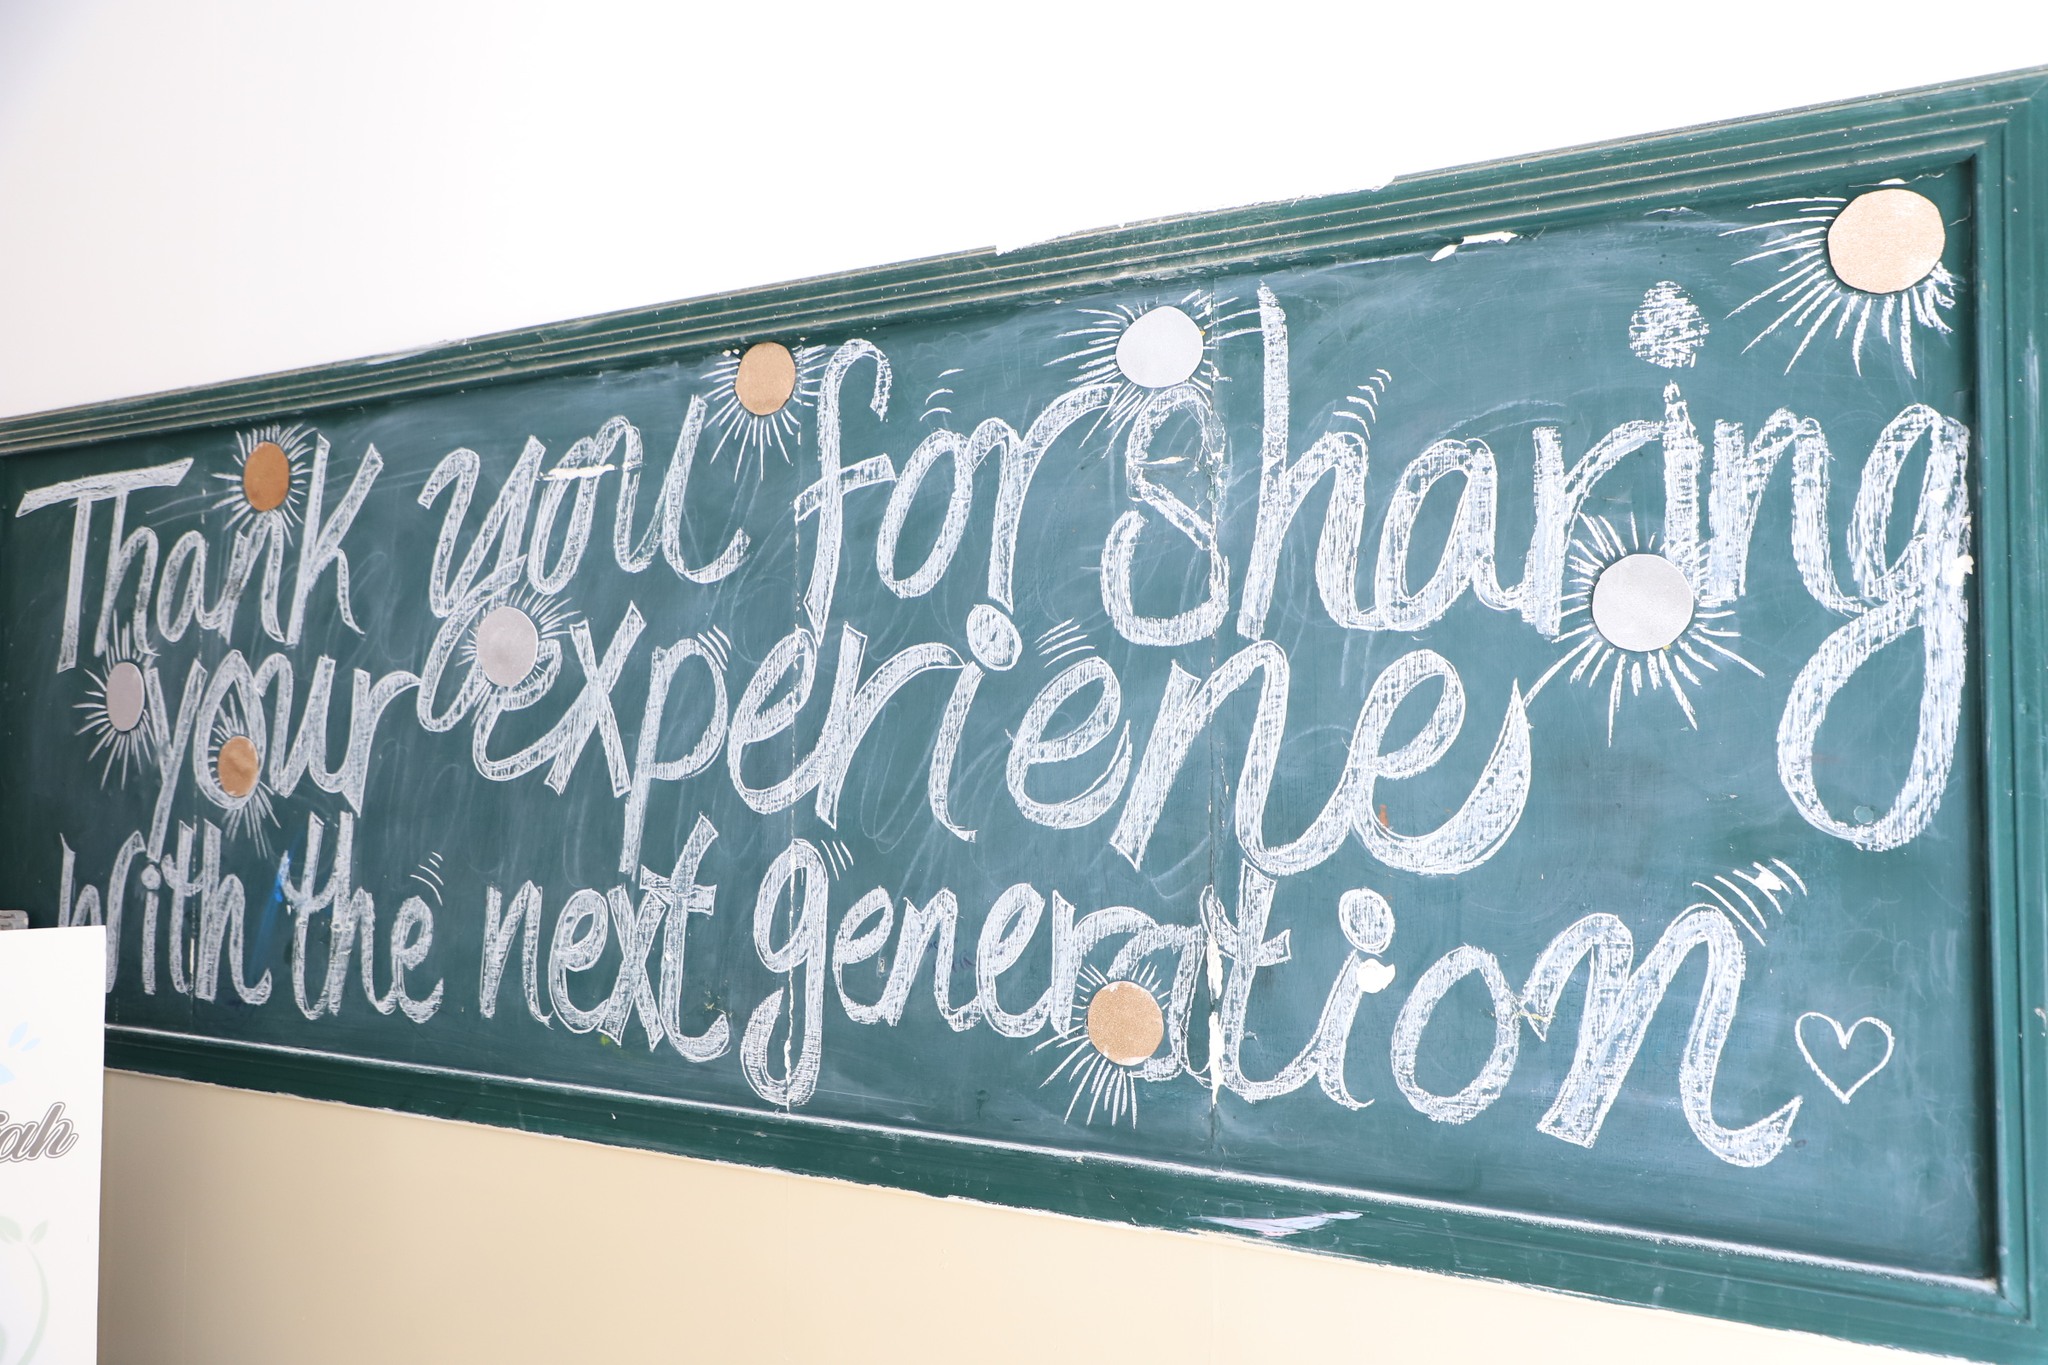 Thank you for sharing
your experiene
with the next generation